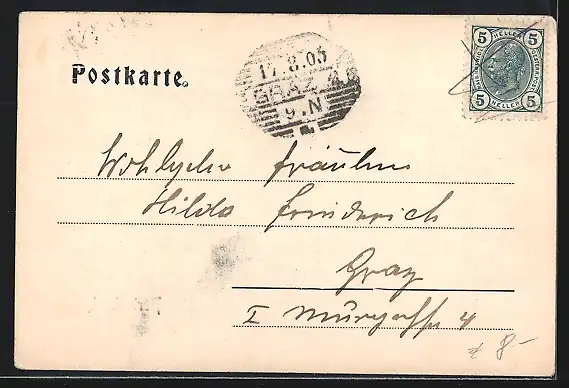 Postkarte.
17.8.05
GRAZ
9.N
5 HELLER 5
5 HELLER 5
Wohlgeb. Fräulein
Hilda Friederich
Graz
I Murgasse 4
8-